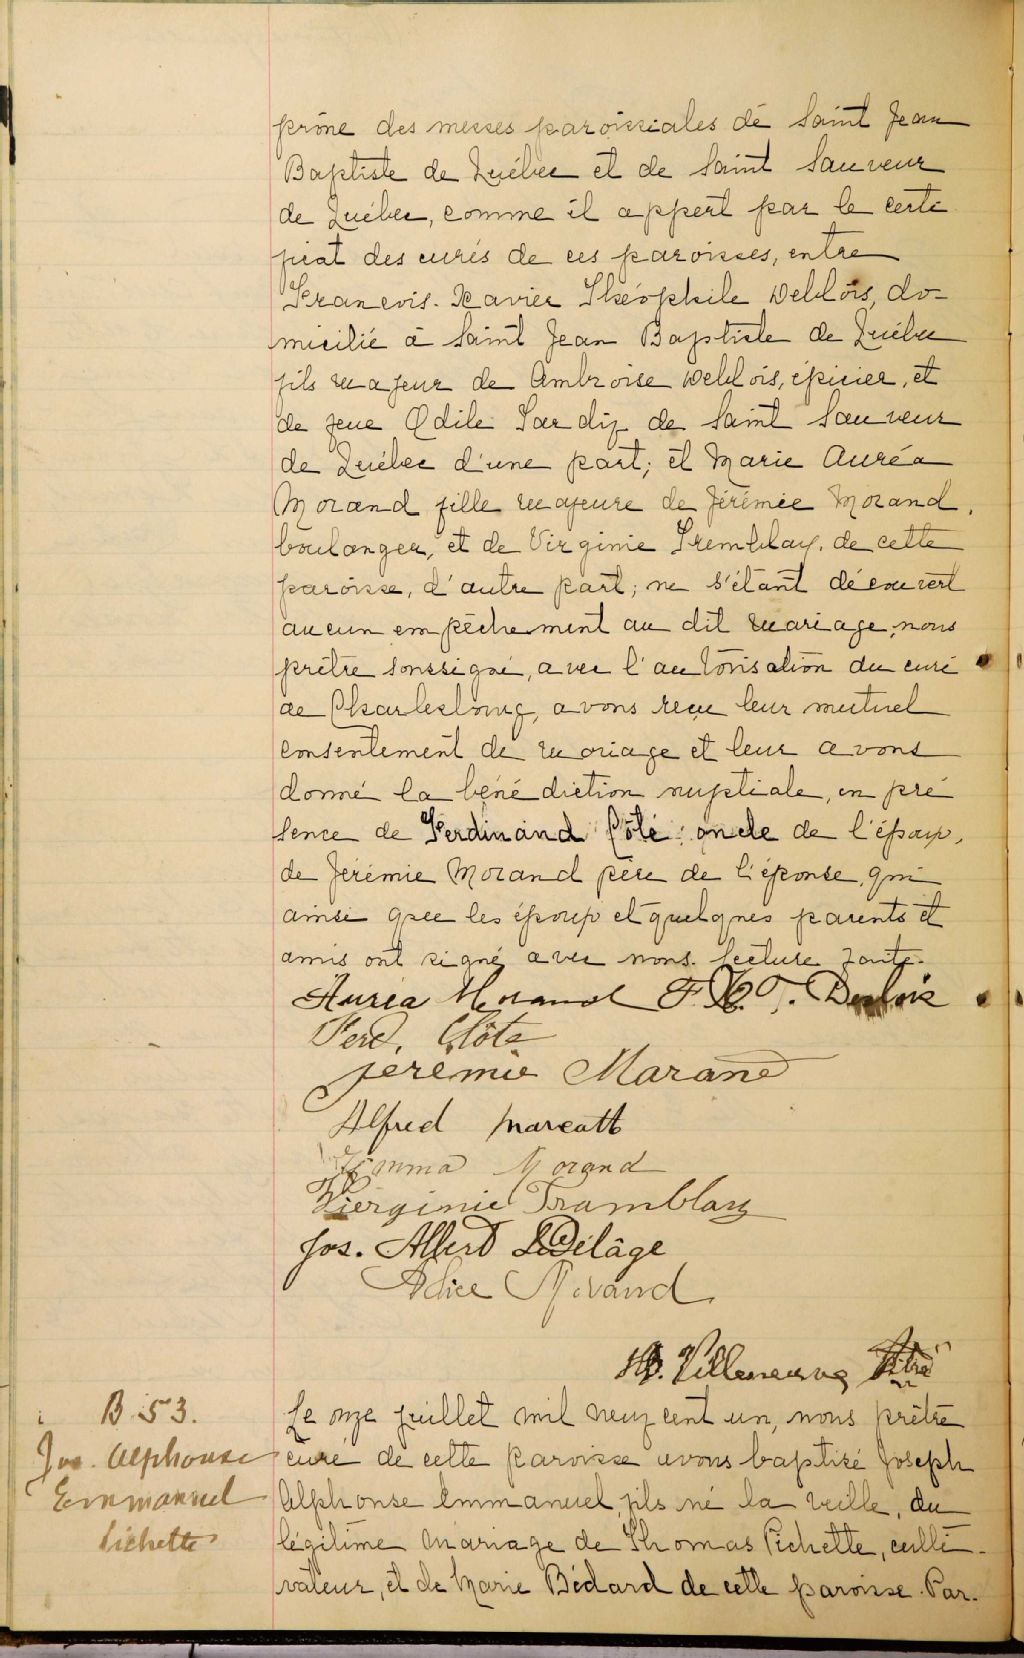 prône des messes paroissiales de Saint Jean
Baptiste de Québec et de Saint Sauveur
de Québec, comme il appert par le certi
ficat des curés de ces paroisses, entre
François-Xavier Théophile Deblois, do-
micilié à Saint Jean Baptiste de Québec
fils majeur de Ambroise Deblois, épicier, et
de feue Odile Tardif de Saint Sauveur
de Québec d'une part; et Marie Auréa
Morand fille majeure de Jérémie Morand,
boulanger, et de Virginie Tremblay, de cette
paroisse, d'autre part; ne s'étant découvert
aucun empêchement au dit mariage, nous
prêtre soussigné, avec l'autorisation du curé
de Charlesbourg, avons reçu leur mutuel
consentement de mariage et leur avons
donné la bénédiction nuptiale, en pré
sence de Ferdinand Côté oncle de l'époux,
de Jérémie Morand père de l'épouse, qui
ainsi que les époux et quelques parents et
amis ont signé avec nous. Lecture faite.
Auréa Morand F. X. T. Deblois
Ferd. Côté
Jérémie Marand
Alfred Marcotte
Emma Morand
Vierginie Tramblay
Jos. Albert Délâge
Alice Morand
Villeneuve Ptre
B 53.
Jos. Alphonse
Emmanuel
Pichette
Le onze juillet mil neuf cent un, nous prêtre
curé de cette paroisse avons baptisé Joseph
Alphonse Emmanuel, fils né la veille, du
légitime mariage de Thomas Pichette, culti-
vateur, et de Marie Bédard de cette paroisse. Par-